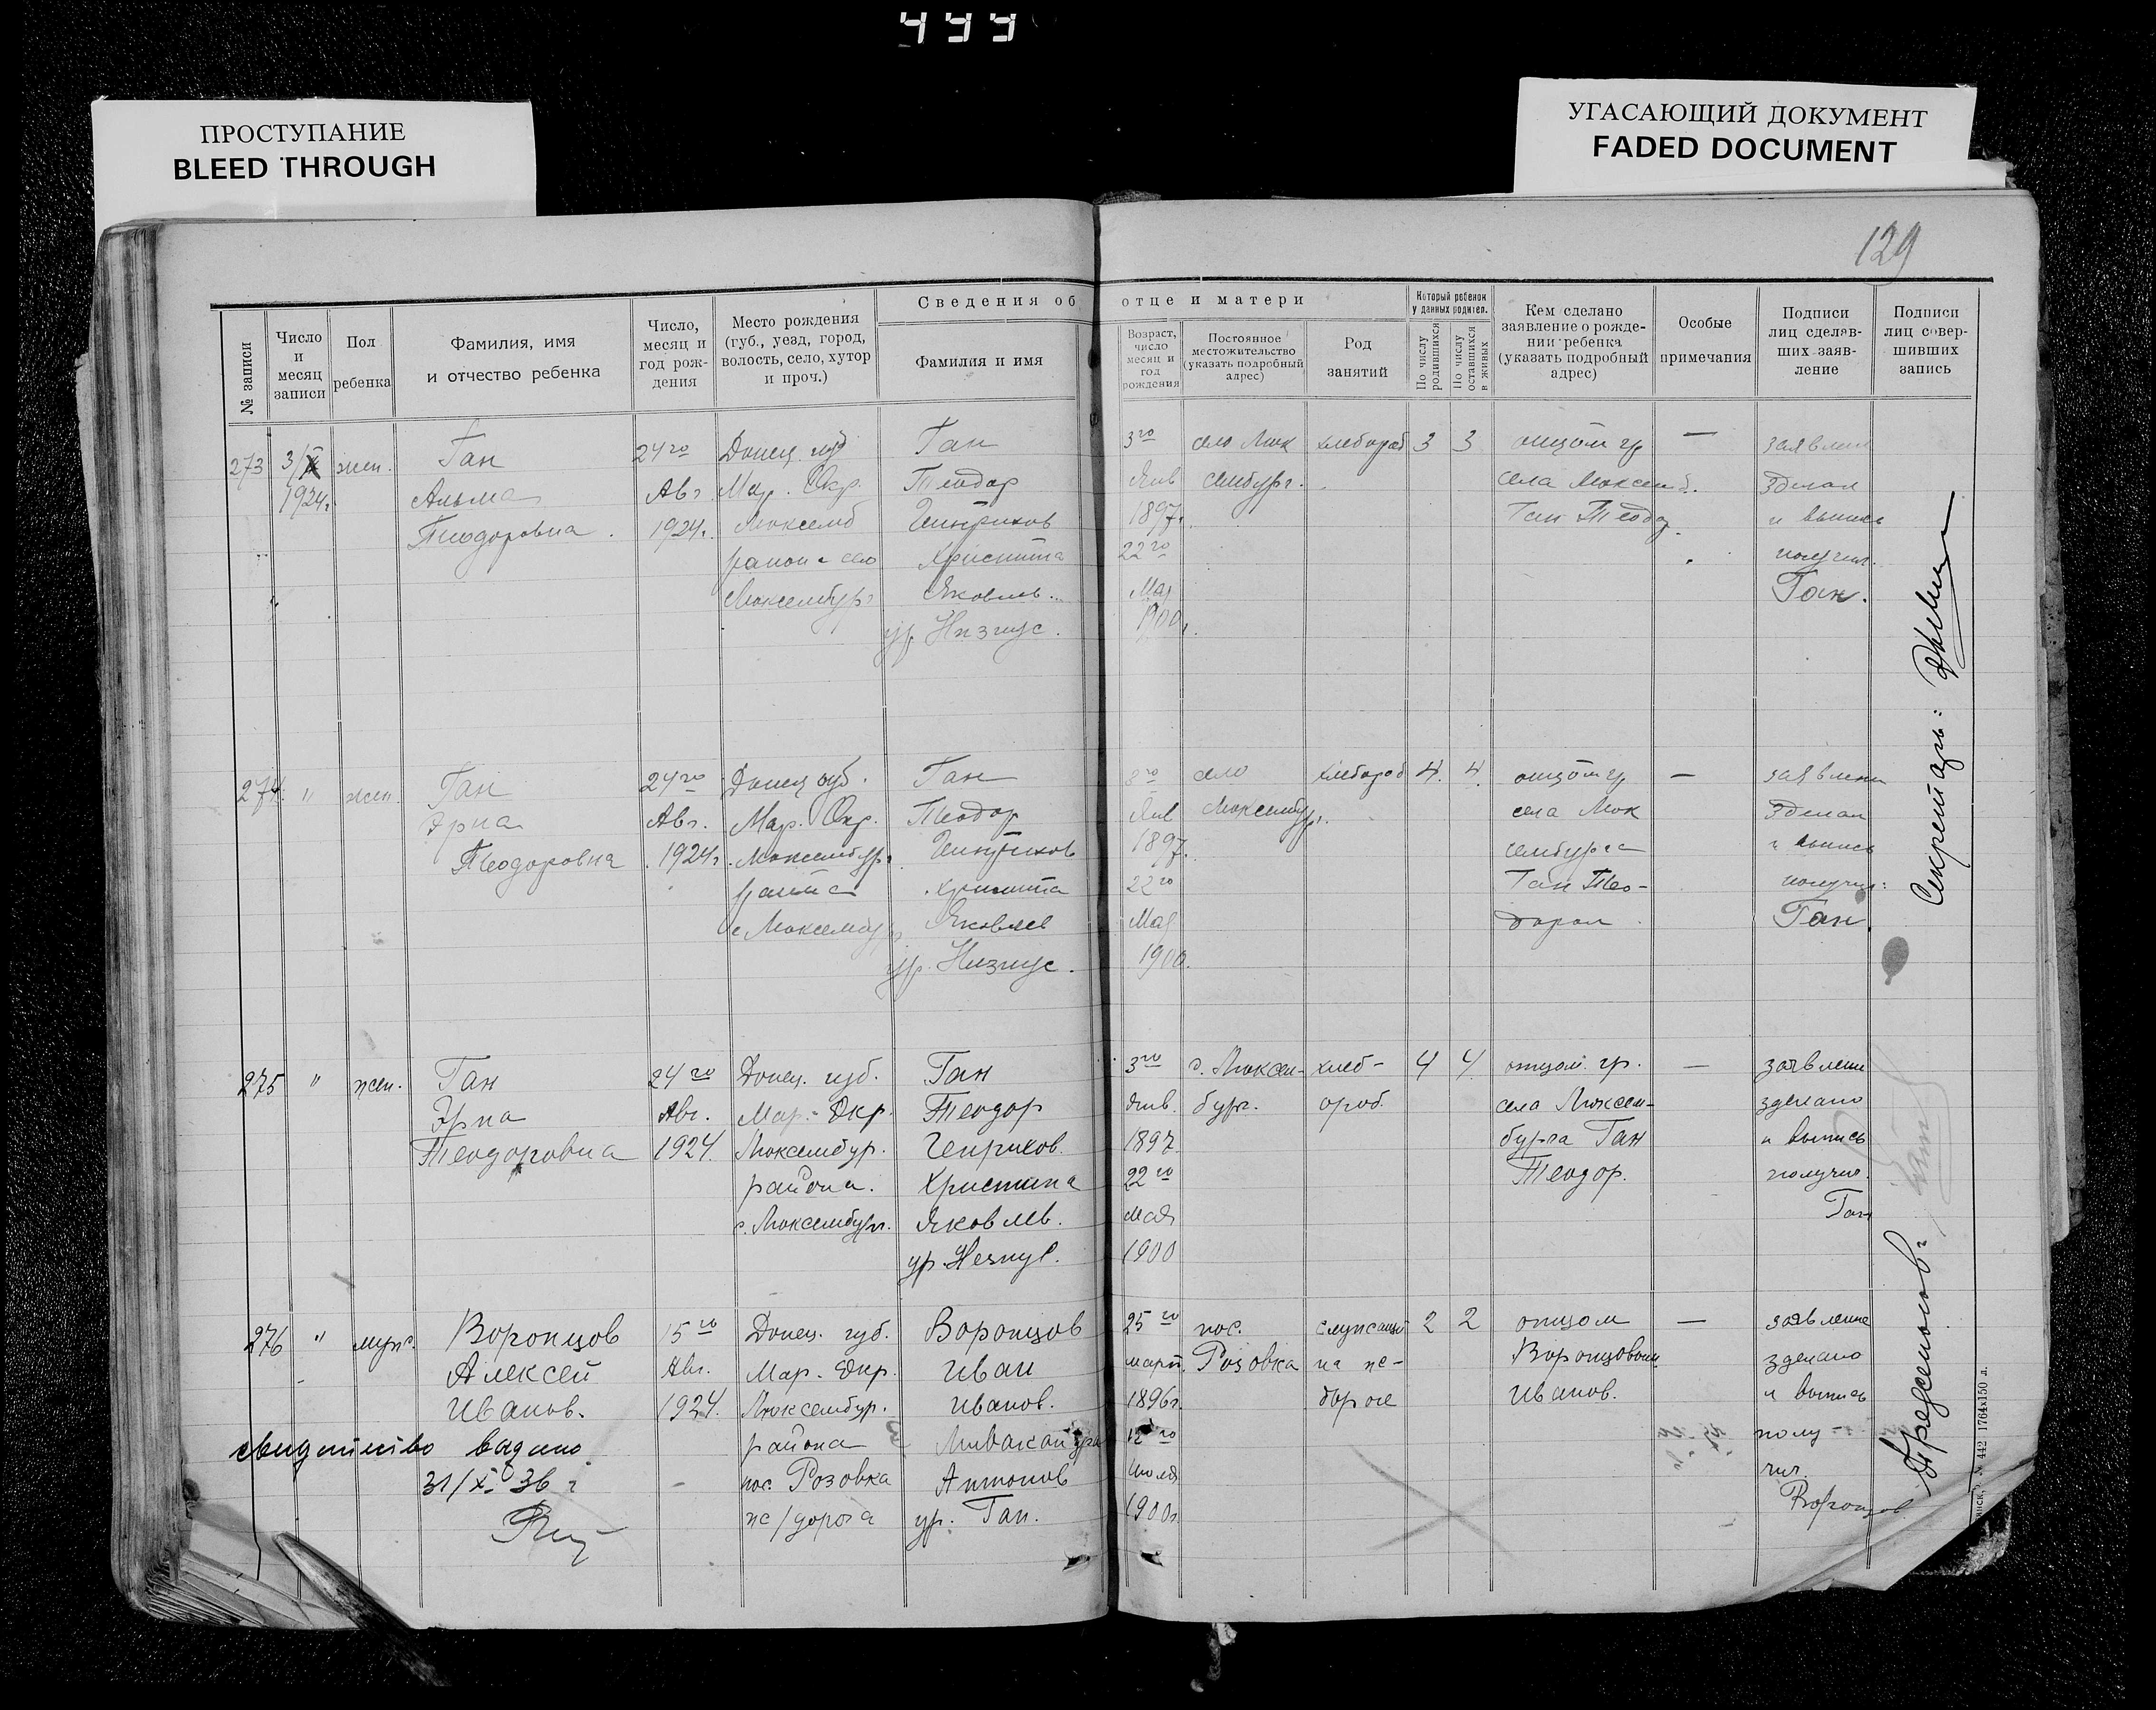 499
ПРОСТУПАНИЕ
BLEED THROUGH
УГАСАЮЩИЙ ДОКУМЕНТ
FADED DOCUMENT
129
Сведения об отце и матери
№ записи
Число и месяц записи
Пол ребенка
Фамилия, имя и отчество ребенка
Число, месяц и год рождения
Место рождения (губ., уезд, город, волость, село, хутор и проч.)
Фамилия и имя
Возраст, число месяц и год рождения
Постоянное местожительство (указать подробный адрес)
Род занятий
Который ребенок у данных родител.
По числу родившихся
По числу оставшихся в живых
Кем сделано заявление о рождении ребенка (указать подробный адрес)
Особые примечания
Подписи лиц сделавших заявление
Подписи лиц совершивших запись
273 3/ жен. Ган 24го Донец. губ Ган 3го село Люк хлебороб 3 3 отцом гр — заявлен
1924г. Альма Авг. Мар. Окр. Теодор Янв сембург. села Люксемб. зделал
Теодоровна 1924г. Люксемб Генрихов 1897г. Ган Теодо и выпись
район село Христина 22го получил.
Люксембург Яковлев. Мая Ган.
ур. 1900г.
274. " жен. Ган 24го Донец губ. Ган село хлебороб 4. 4 отцом гр — заявлен
Эрна Авг. Мар. Окр. Теодор Янв Люксембург. села Люк зделал
Теодоровна 1924г. Люксембург. Генрихов 1897. сембурга и выпись
Христина 22го Ган Тео- получил:
с Люксембург Яковлев Мая дором Ган.
ур. 1900.
275 " жен. Ган 24го Донец. губ. Ган 3го с. Люксем- хлеб- 4 4 отцом гр. — заявлени
Эрна Авг. Мар. Окр. Теодор Янв. бург. ороб. села Люксем- зделано
Теодоровна 1924. Люксембур. Генрихов. 1897 бурга Ган и выпись
района. Христина 22го Теодор. получил.
с. Люксембург. Яковлев. мая Ган
ур. 1900
276 " мужс. Воронцов 15го Донец. губ. Воронцов 25го пос. служащий 2 2 отцом — заявление
Алексей Авг. Мар. Окр. Иван март. Розовка на же- Воронцовым зделано
Иванов. 1924. Люксембур. Иванов. 1896г. дороге Иванов. и выпись
района 12го полу-
пос. Розовка Антонов июля чил.
же/дорога ур. Ган. 1900г. Воронцов
31/X 36 г
Секретарь:
№ 442 1764х150 л.